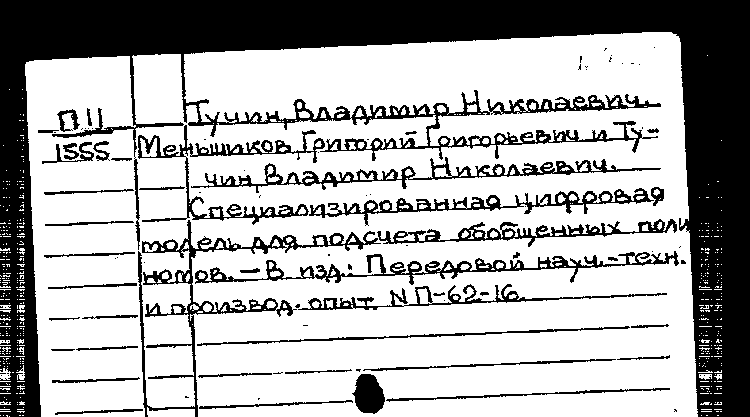 П11
1555
Тучин, Владимир Николаевич.
Меньшиков, Григорий Григорьевич и Ту-
чин, Владимир Николаевич.
Специализированная цифровая
модель для подсчета обобщенных поли
номов. — В изд.: Передовой науч.-техн.
и производ. опыт. N П-62-16.